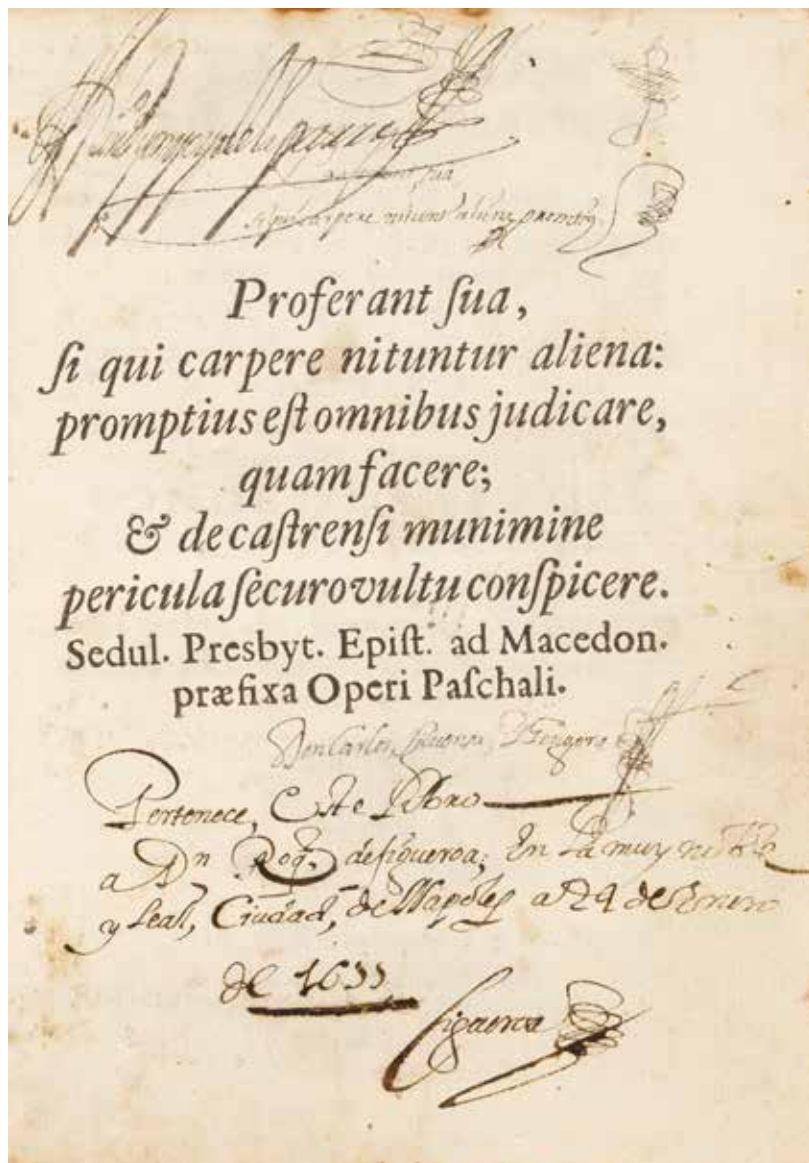 sua
carpere nitunt aliena promtiq
Proferant ſua,
ſi qui carpere nituntur aliena:
promptius eſt omnibus judicare,
quam facere;
& de caſtrenſi munimine
pericula ſecuro vultu conſpicere.
Sedul. Presbyt. Epiſt. ad Macedon.
præfixa Operi Paſchali.
Don Carlos
Pertenece, Este Libro
a Dn Roq. de figueroa; En La muy noble
y Leal, Ciudad, de Napoles a 29 de Enero
de 1655
figueroa